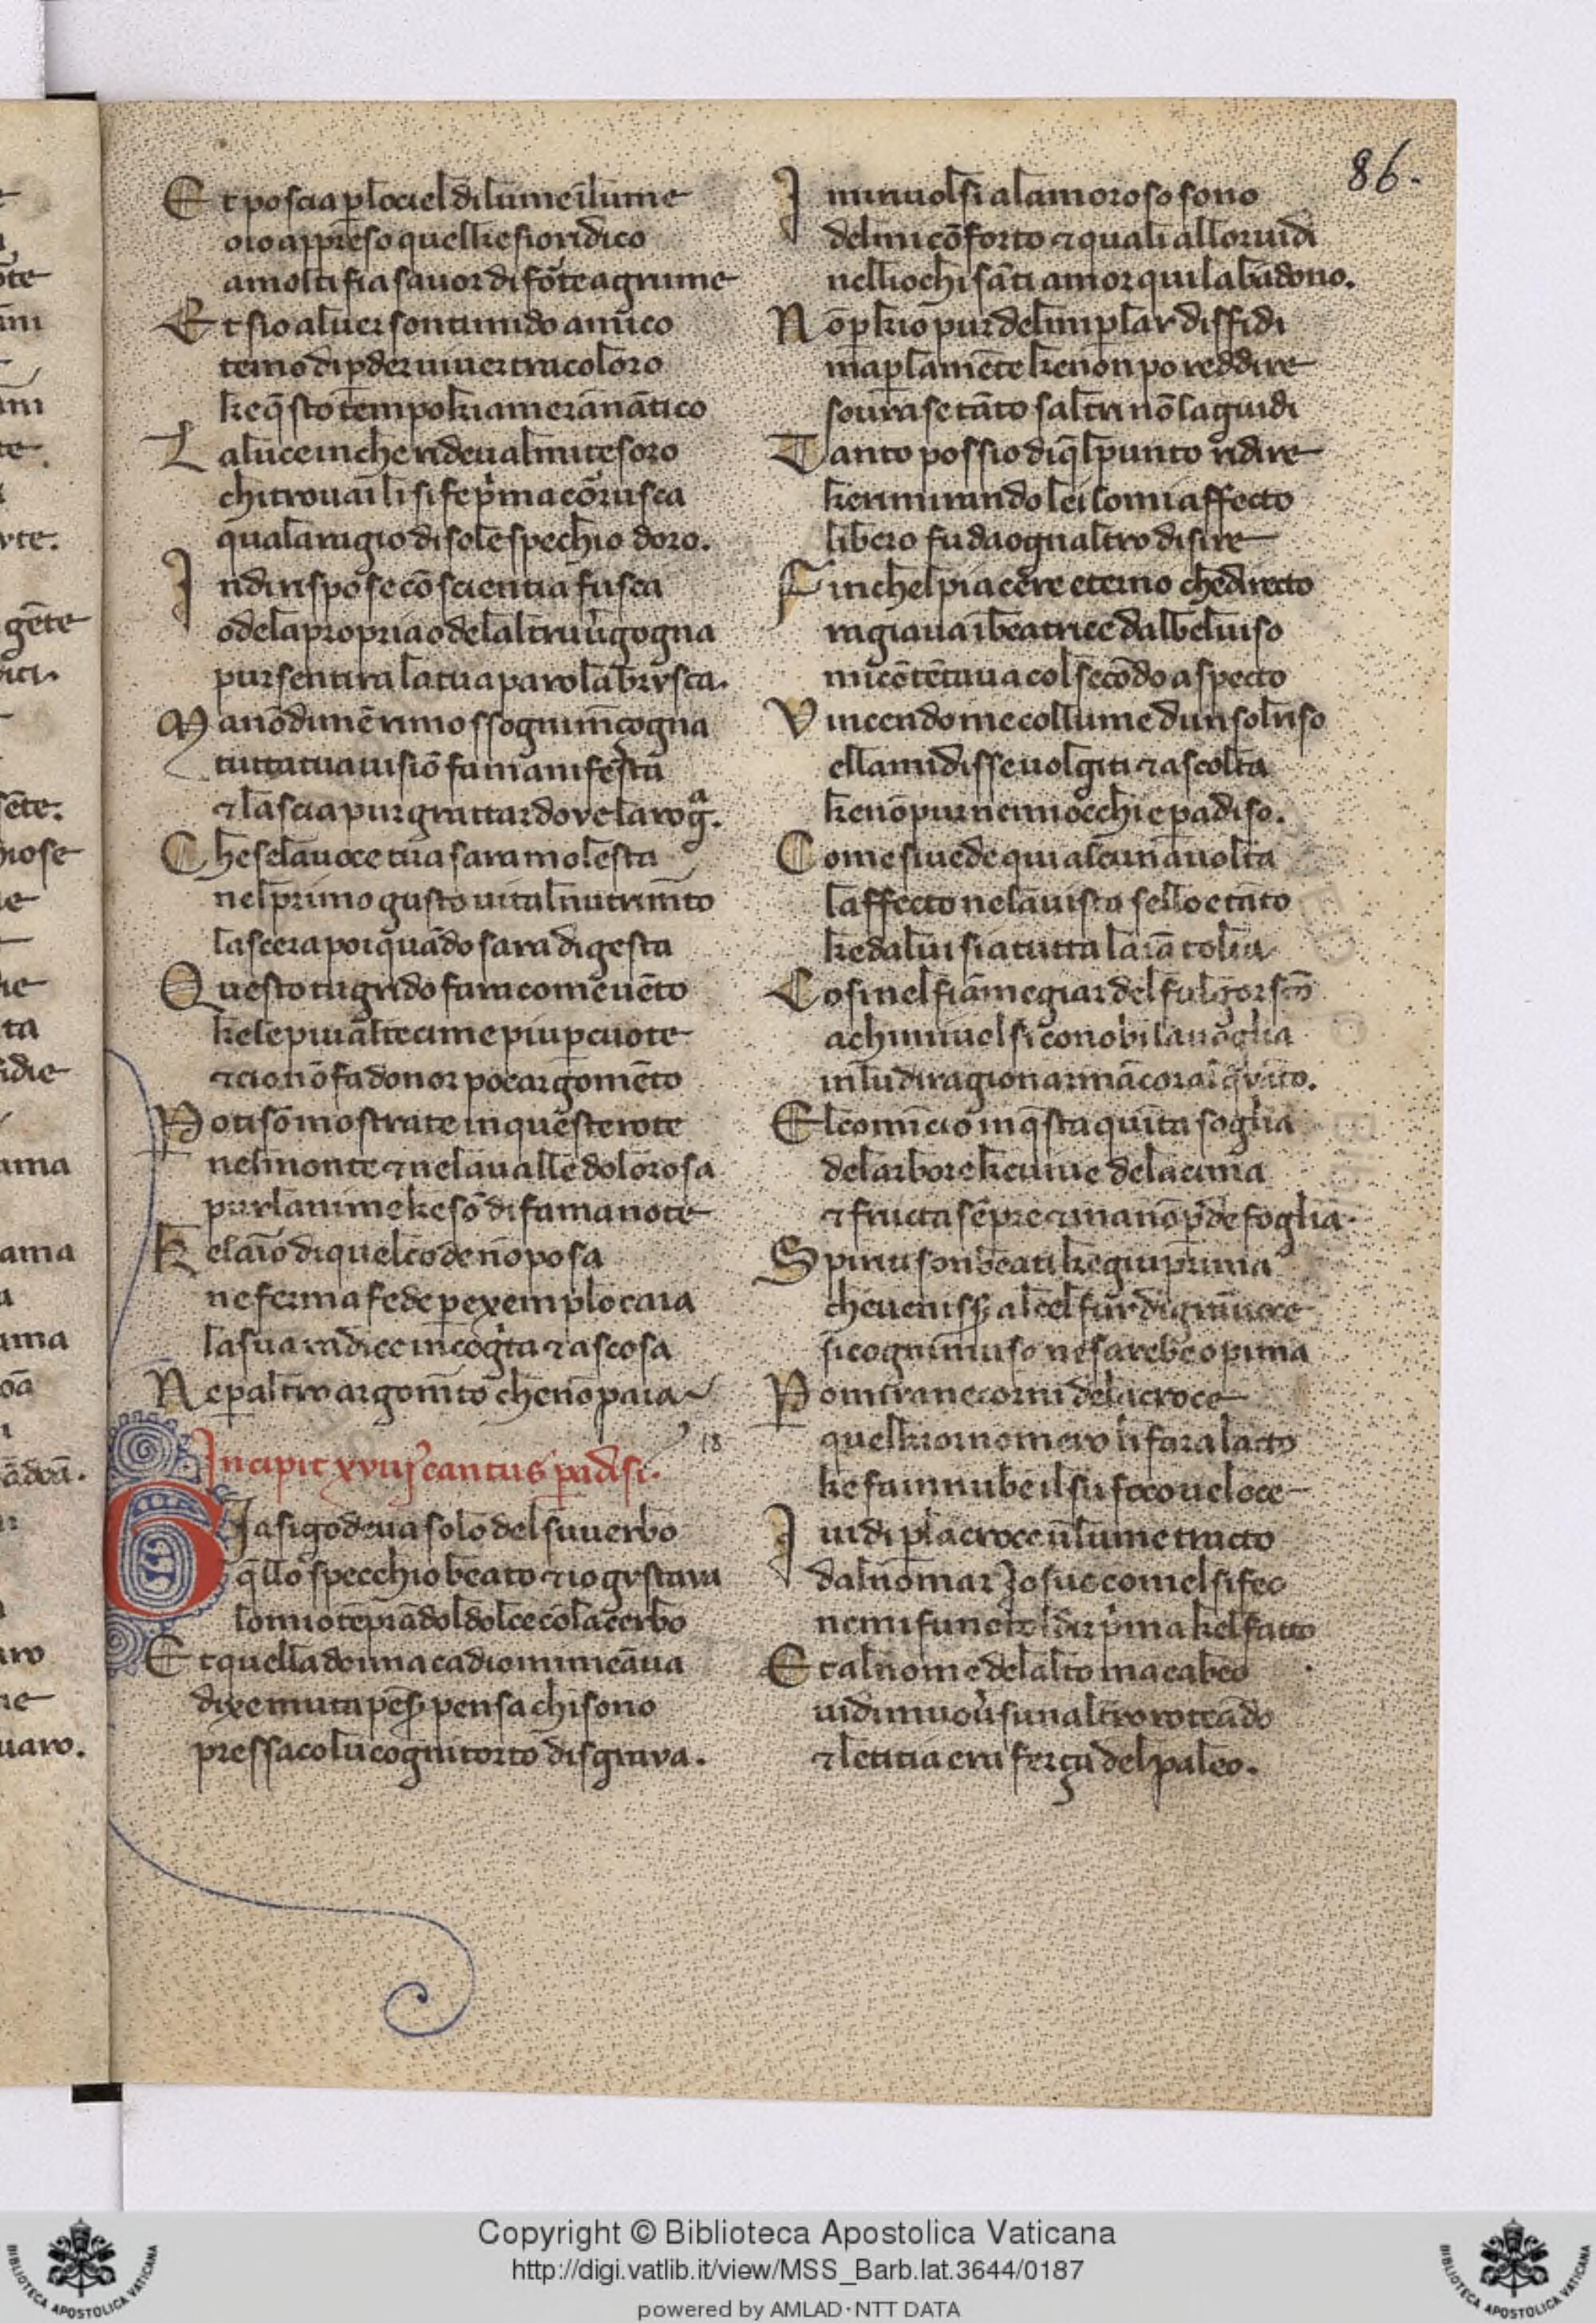 86.
Et poscia p̱ lo ciel di lume ī lume
oio appreso quel kesio ridico
a molti fia savor di fōte agrume
Et sio al uer son tumido amico
temo di p̱der uiuer tra coloro
ke q̄sto tempo kiameran antico
La luce in che rideua l mi tesoro
chi trouai li si fe p̍ma corusca
qual a ragio di sole spechio doro.
Indi rispose cōscientia fusca
o dela propria o delaltrui ũgogna
pur sentira la tua parola brusca.
Ma nō di mē rimossogni mēçogna
tutta tua uisiō fa manifesta
⁊ lascia pur grattar dove la rogͣ.
Che se la uoce tua sara molesta
nel primo gusto uital nutrimēto
lascera poi quādo sara digesta
Questo tu grido fara come uēto
ke le piu alte cime piu p̱cuote
⁊ cio nō fa donor poc argomēto
Po ti sō mostrate in queste rote
nel monte ⁊ nela ualle dolorosa
pur lanime ke sō di fama note
Ke laīo di quel code nō posa
ne ferma fede per exemplo caia
la sua radice incogīta ⁊ ascosa
Ne p̱ altro argomēto che nō paia
18
Incipit xviij cantus paradisi.
Gia si godeua solo del suuerbo
q̄llo specchio beato ⁊ io gustaua
lo mio tēprādol dolce cō lacerbo
Et quella donna ca dio mi menaua
dixe muta pēs̄ pensa chi sono
presso a colui cogni torto disgraua.
I mi riuolsi a lamoroso sono
del mi cōforto ⁊ quali allor uidi
nelli ochi sāti amor qui labādono.
Nō p̱ kio pur del mi p̱lar diffidi
ma p̱ la mēte ke non po reddire
soura se tāto saltri nō la guidi
Tanto possio di q̄l punto ridire
ke rimirando lei lo mi affecto
libero fu da ognaltro disire
Finchel piacere eterno che directo
ragiaua ī beatrice dal bel uiso
mi cōtētaua col secōdo aspecto
Vincendo me col lume dun soriso
ella mi disse uolgiti ⁊ ascolta
ke nō pur ne mi occhi e paradiso.
Come si uede qui alcuna uolta
laffecto nela uista sello e tāto
ke da lui sia tutta laīa tolta
Cosi nel fiāmegiar del fulgor scō
a chi mi uolsi conobi la uoglia
in lui di ragionarmi ācora alq̄nto.
El comīcio in q̄sta quīta soglia
delarbore ke uiue dela cima
⁊ fructa sēpre ⁊ mai nō p̱de foglia.
Spiriti son beati ke giu prima
che ueniss̄ al ciel fur di grā uoce
si cogni muso ne sarebe opima
Pomira ne corni dela croce
quel kior nomero li fara lacto
ke fa in nube il su foco ueloce
I uidi p̱ la croce ū lume tracto
dal nomar Josue comel si feo
ne mi fu noto l dir p̍ma kel facto
Et al nome delalto macabeo
uidi muoũsi un altro roteādo
⁊ letitia era ferça del paleo.
Copyright © Biblioteca Apostolica Vaticana
http://digi.vatlib.it/view/MSS_Barb.lat.3644/0187
powered by AMLAD·NTT DATA
BIBLIOTECA APOSTOLICA VATICANA
BIBLIOTECA APOSTOLICA VATICANA